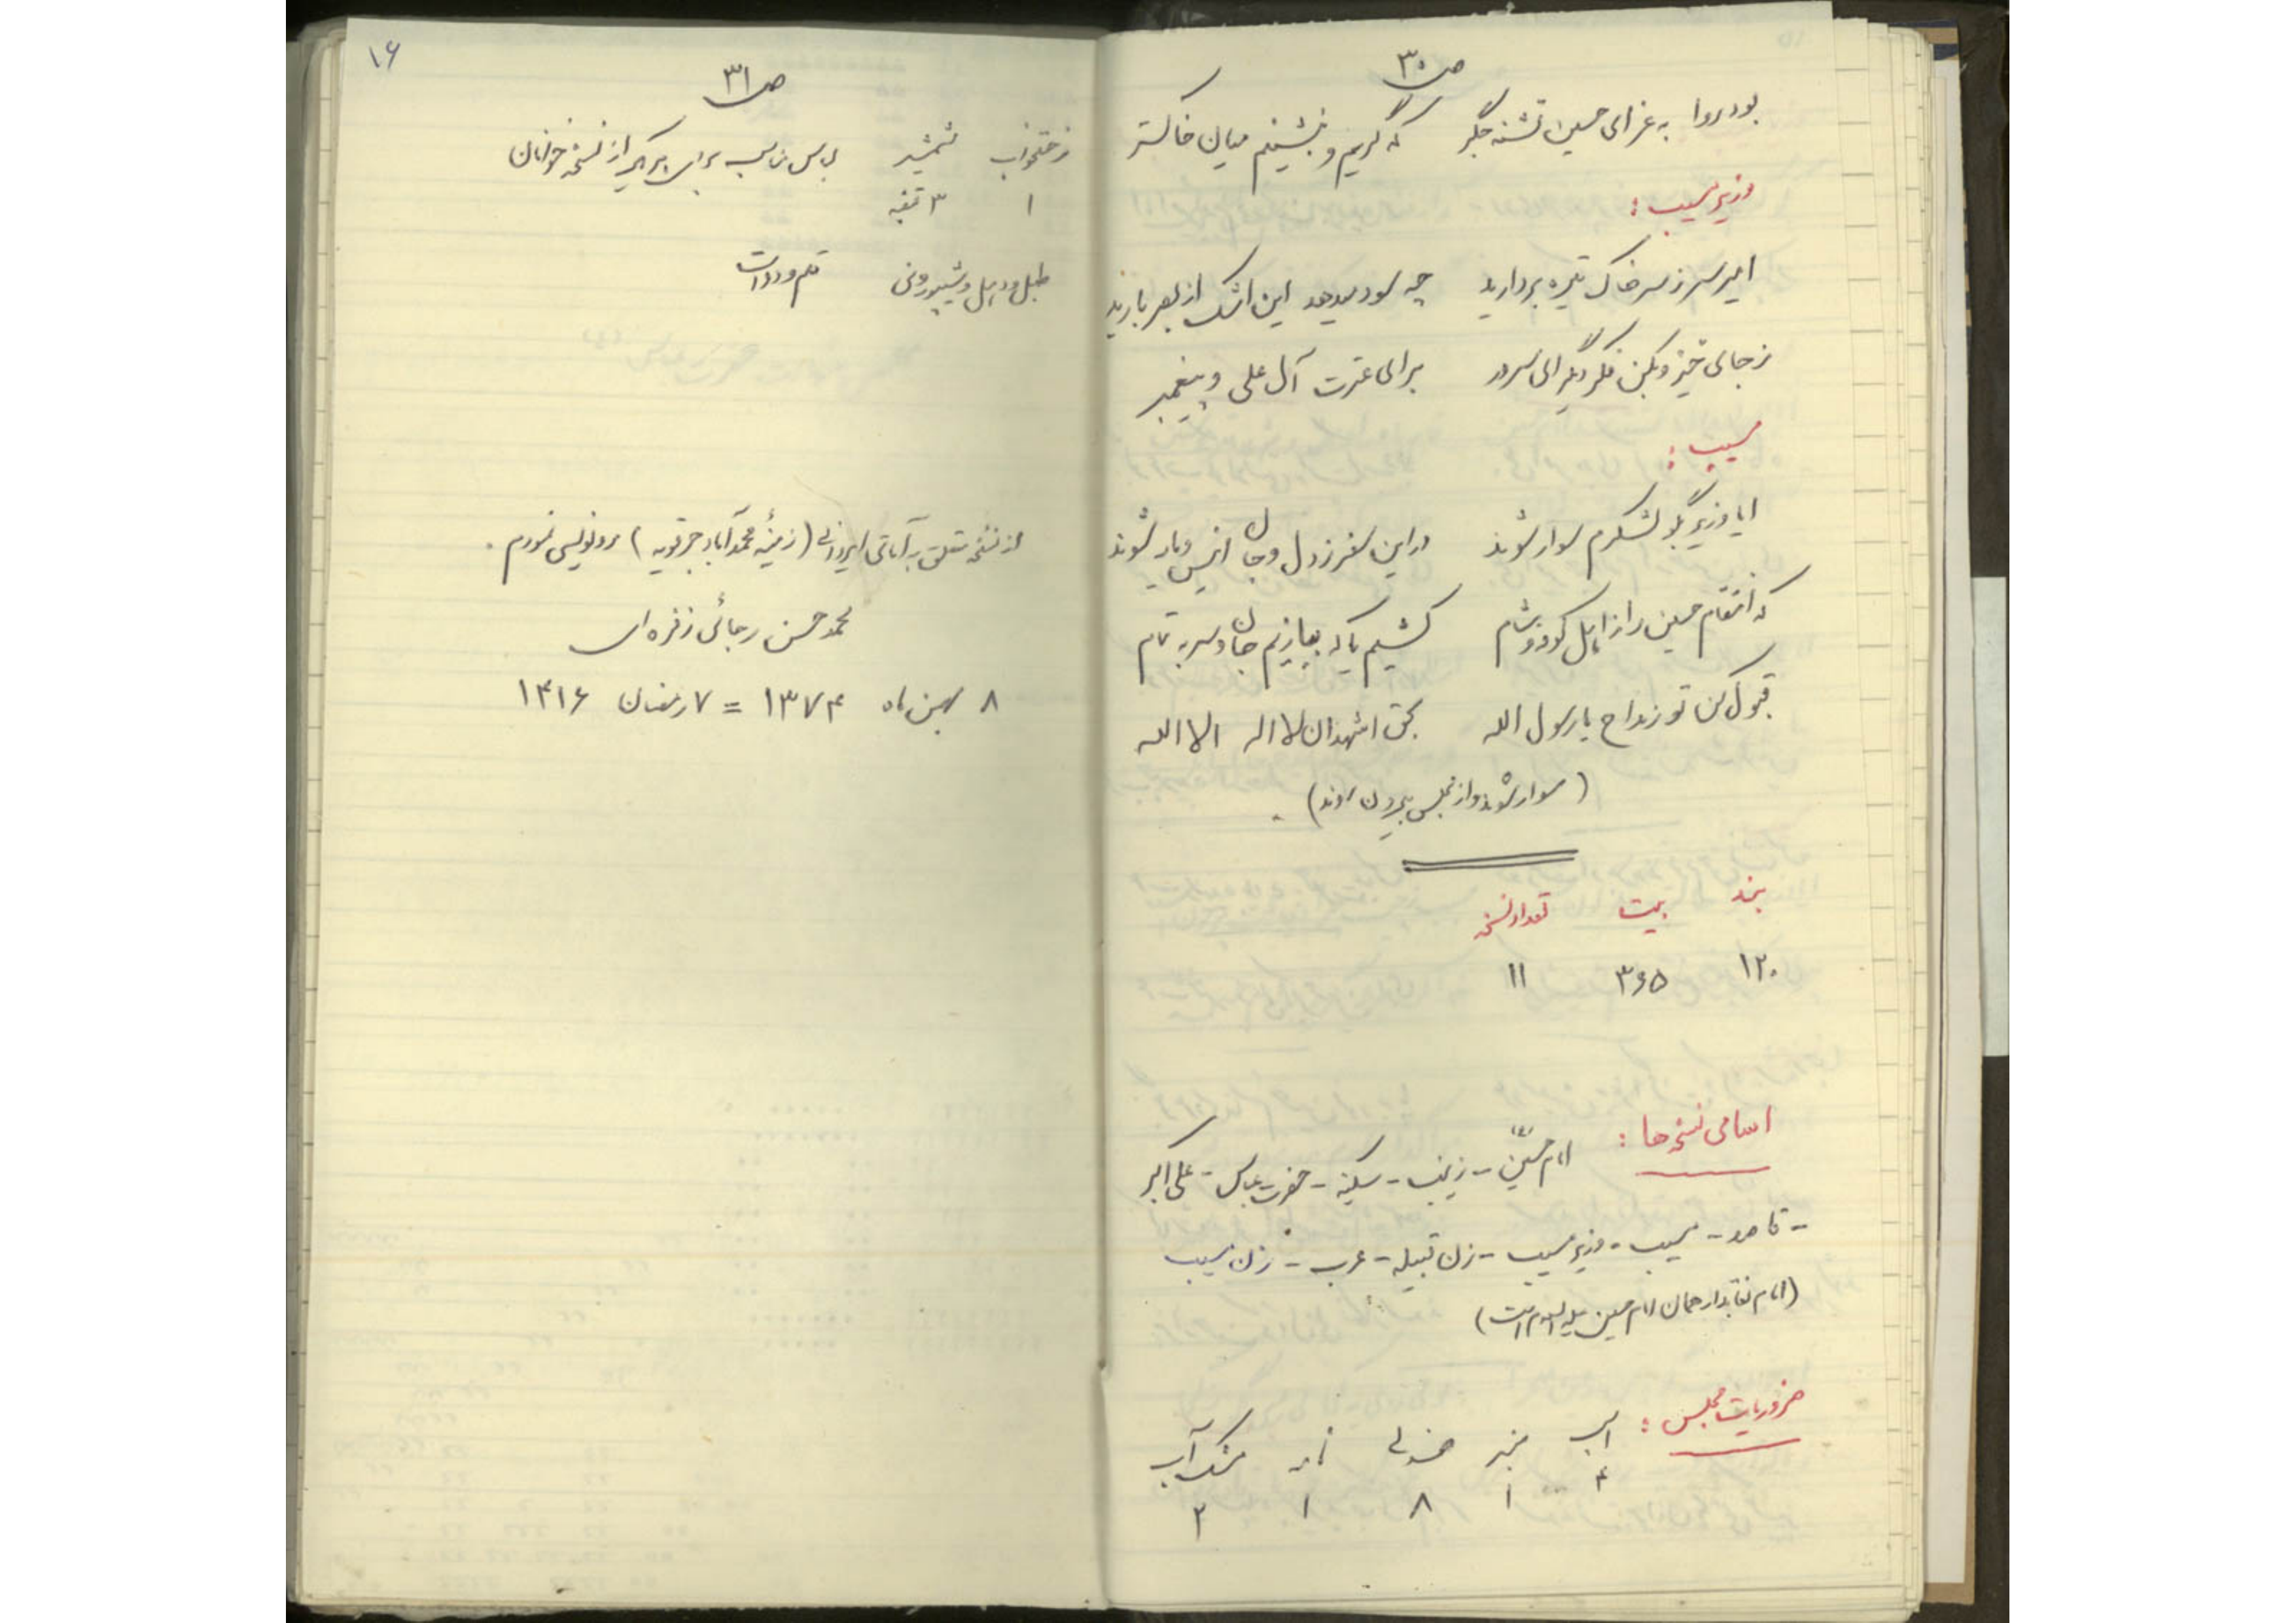 ص ۳۰
بود روا به عزای حسین تشنه جگر که گریم و بنشینم میان خاکستر
وزیر مسیب :
امیر سر ز سر خاک تیره بردارید چه سود میدهد این اشک از بصر بارید
ز جای خیز و بکن فکر دیگر ای سرور برای عترت آل علی و پیغمبر
مسیب :
ایا وزیر بگو لشکرم سوار شوند در این سفر ز دل و جان انیس و یار شوند
که انتقام حسین را ز اهل کوفه و شام کشیم یا که ببازیم جان و سر به تمام
قبول کن تو ز مداح یا رسول الله بحق اشهد ان لا اله الا الله
(سوار شوند و از مجلس بیرون روند) .
بند بیت تعداد نسخه
۱۲۰ ۳۶۵ ۱۱
اسامی نسخه‌ها : امام حسین (ع) - زینب - سکینه - حضرت عباس - علی اکبر
- قاصد - مسیب - وزیر مسیب - زن قبیله - عرب - زن مسیب
(امام نقابدار همان امام حسین علیه السلام است)
ضروریات مجلس : اسب منبر صندلی نامه مشک آب
۴ ۱ ۸ ۱ ۲
۱۶
ص ۳۱
رختخواب شمشیر لباس مناسب برای هر یک از نسخه خوانان
۱ ۳ قبضه
طبل و دهل و شیپور و نی قلم و دوات
از نسخه متعلق به آقای ایزدی (زمینهٔ محمدآباد جرقویه) رونویسی نمودم .
محمد حسن رجائی زفره‌ای
۸ بهمن ماه ۱۳۷۴ = ۷ رمضان ۱۴۱۶